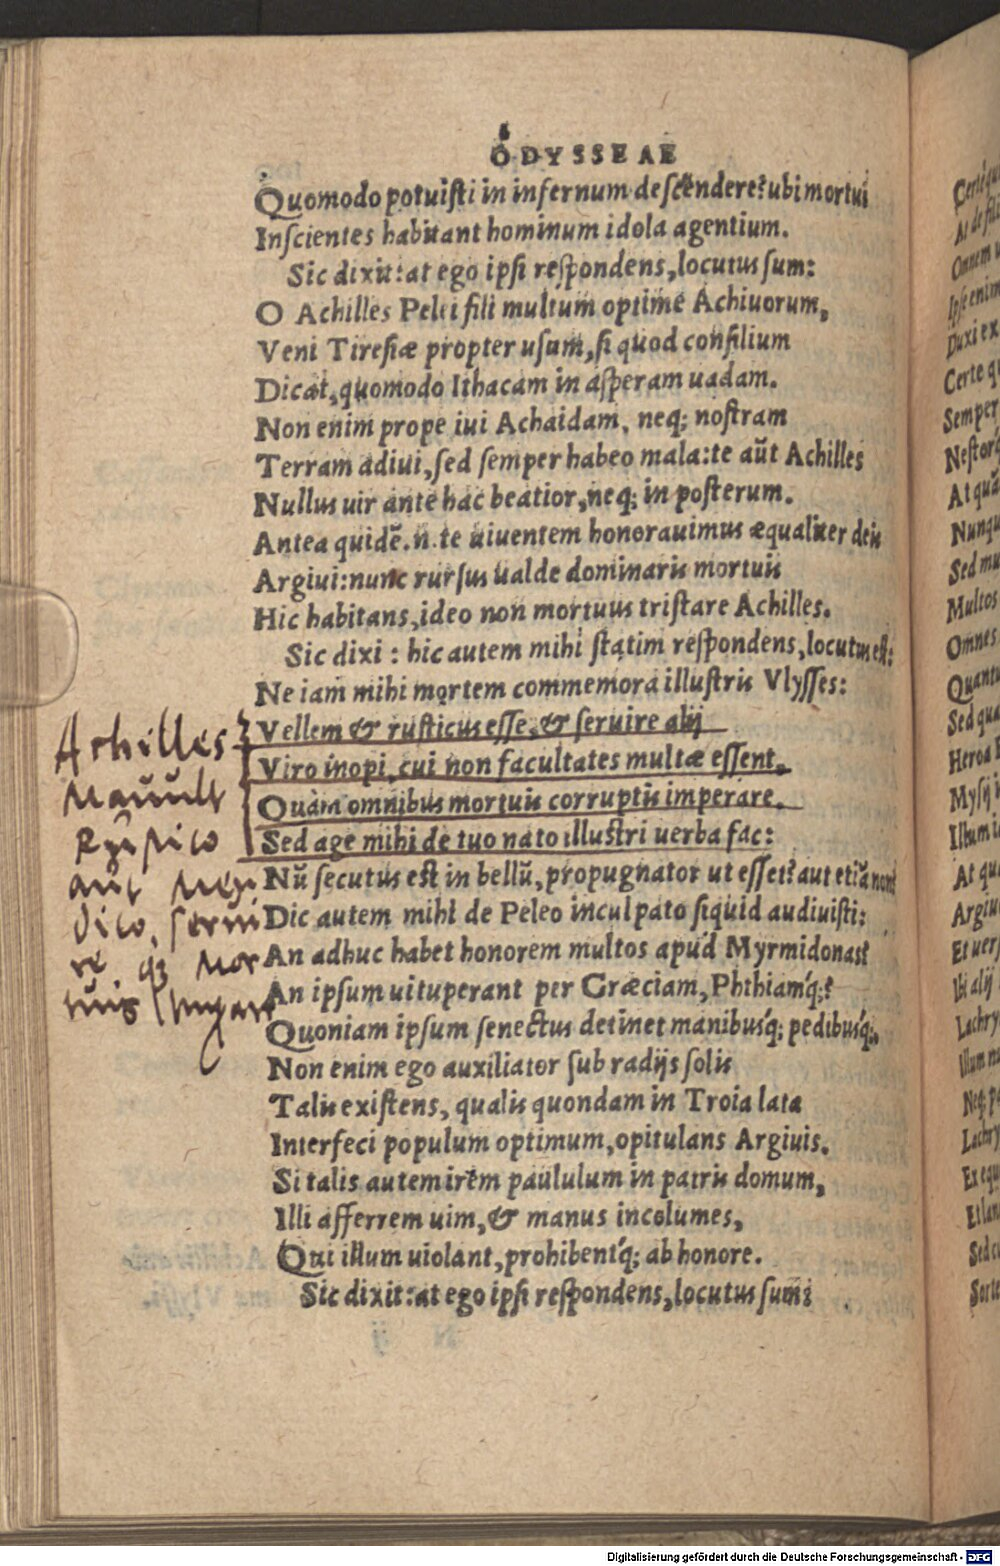 ODYSSEAE
Quomodo potuisti in infernum descendere? ubi mortui
Inscientes habitant hominum idola agentium.
Sic dixit: at ego ipsi respondens, locutus sum:
O Achilles Pelei fili multum optime Achiuorum,
Veni Tiresiæ propter usum, si quod consilium
Dicat, quomodo Ithacam in asperam uadam.
Non enim prope iui Achaidam, neq; nostram
Terram adiui, sed semper habeo mala: te aũt Achilles
Nullus uir ante hac beatior, neq; in posterum.
Antea quidẽ. n. te uiuentem honorauimus æqualiter deis
Argiui: nunc rursus ualde dominaris mortuis
Hic habitans, ideo non mortuus tristare Achilles.
Sic dixi: hic autem mihi statim respondens, locutus est:
Ne iam mihi mortem commemora illustris Vlysses:
Vellem & rusticus esse, & seruire alij
Viro inopi, cui non facultates multæ essent,
Quàm omnibus mortuis corruptis imperare.
Sed age mihi de tuo nato illustri uerba fac:
Nũ secutus est in bellũ, propugnator ut esset? aut etiã non?
Dic autem mihi de Peleo inculpato siquid audiuisti:
An adhuc habet honorem multos apud Myrmidonas?
An ipsum uituperant per Græciam, Phthiamq́;?
Quoniam ipsum senectus detinet manibusq́; pedibusq́;,
Non enim ego auxiliator sub radijs solis
Talis existens, qualis quondam in Troia lata
Interfeci populum optimum, opitulans Argiuis.
Si talis autem irem paululum in patris domum,
Illi afferrem uim, & manus incolumes,
Qui illum uiolant, prohibentq́; ab honore.
Sic dixit: at ego ipsi respondens, locutus sum:
Achilles
mauult
aut
dico, serui
re, qz mor
tuis
Digitalisierung gefördert durch die Deutsche Forschungsgemeinschaft - DFG